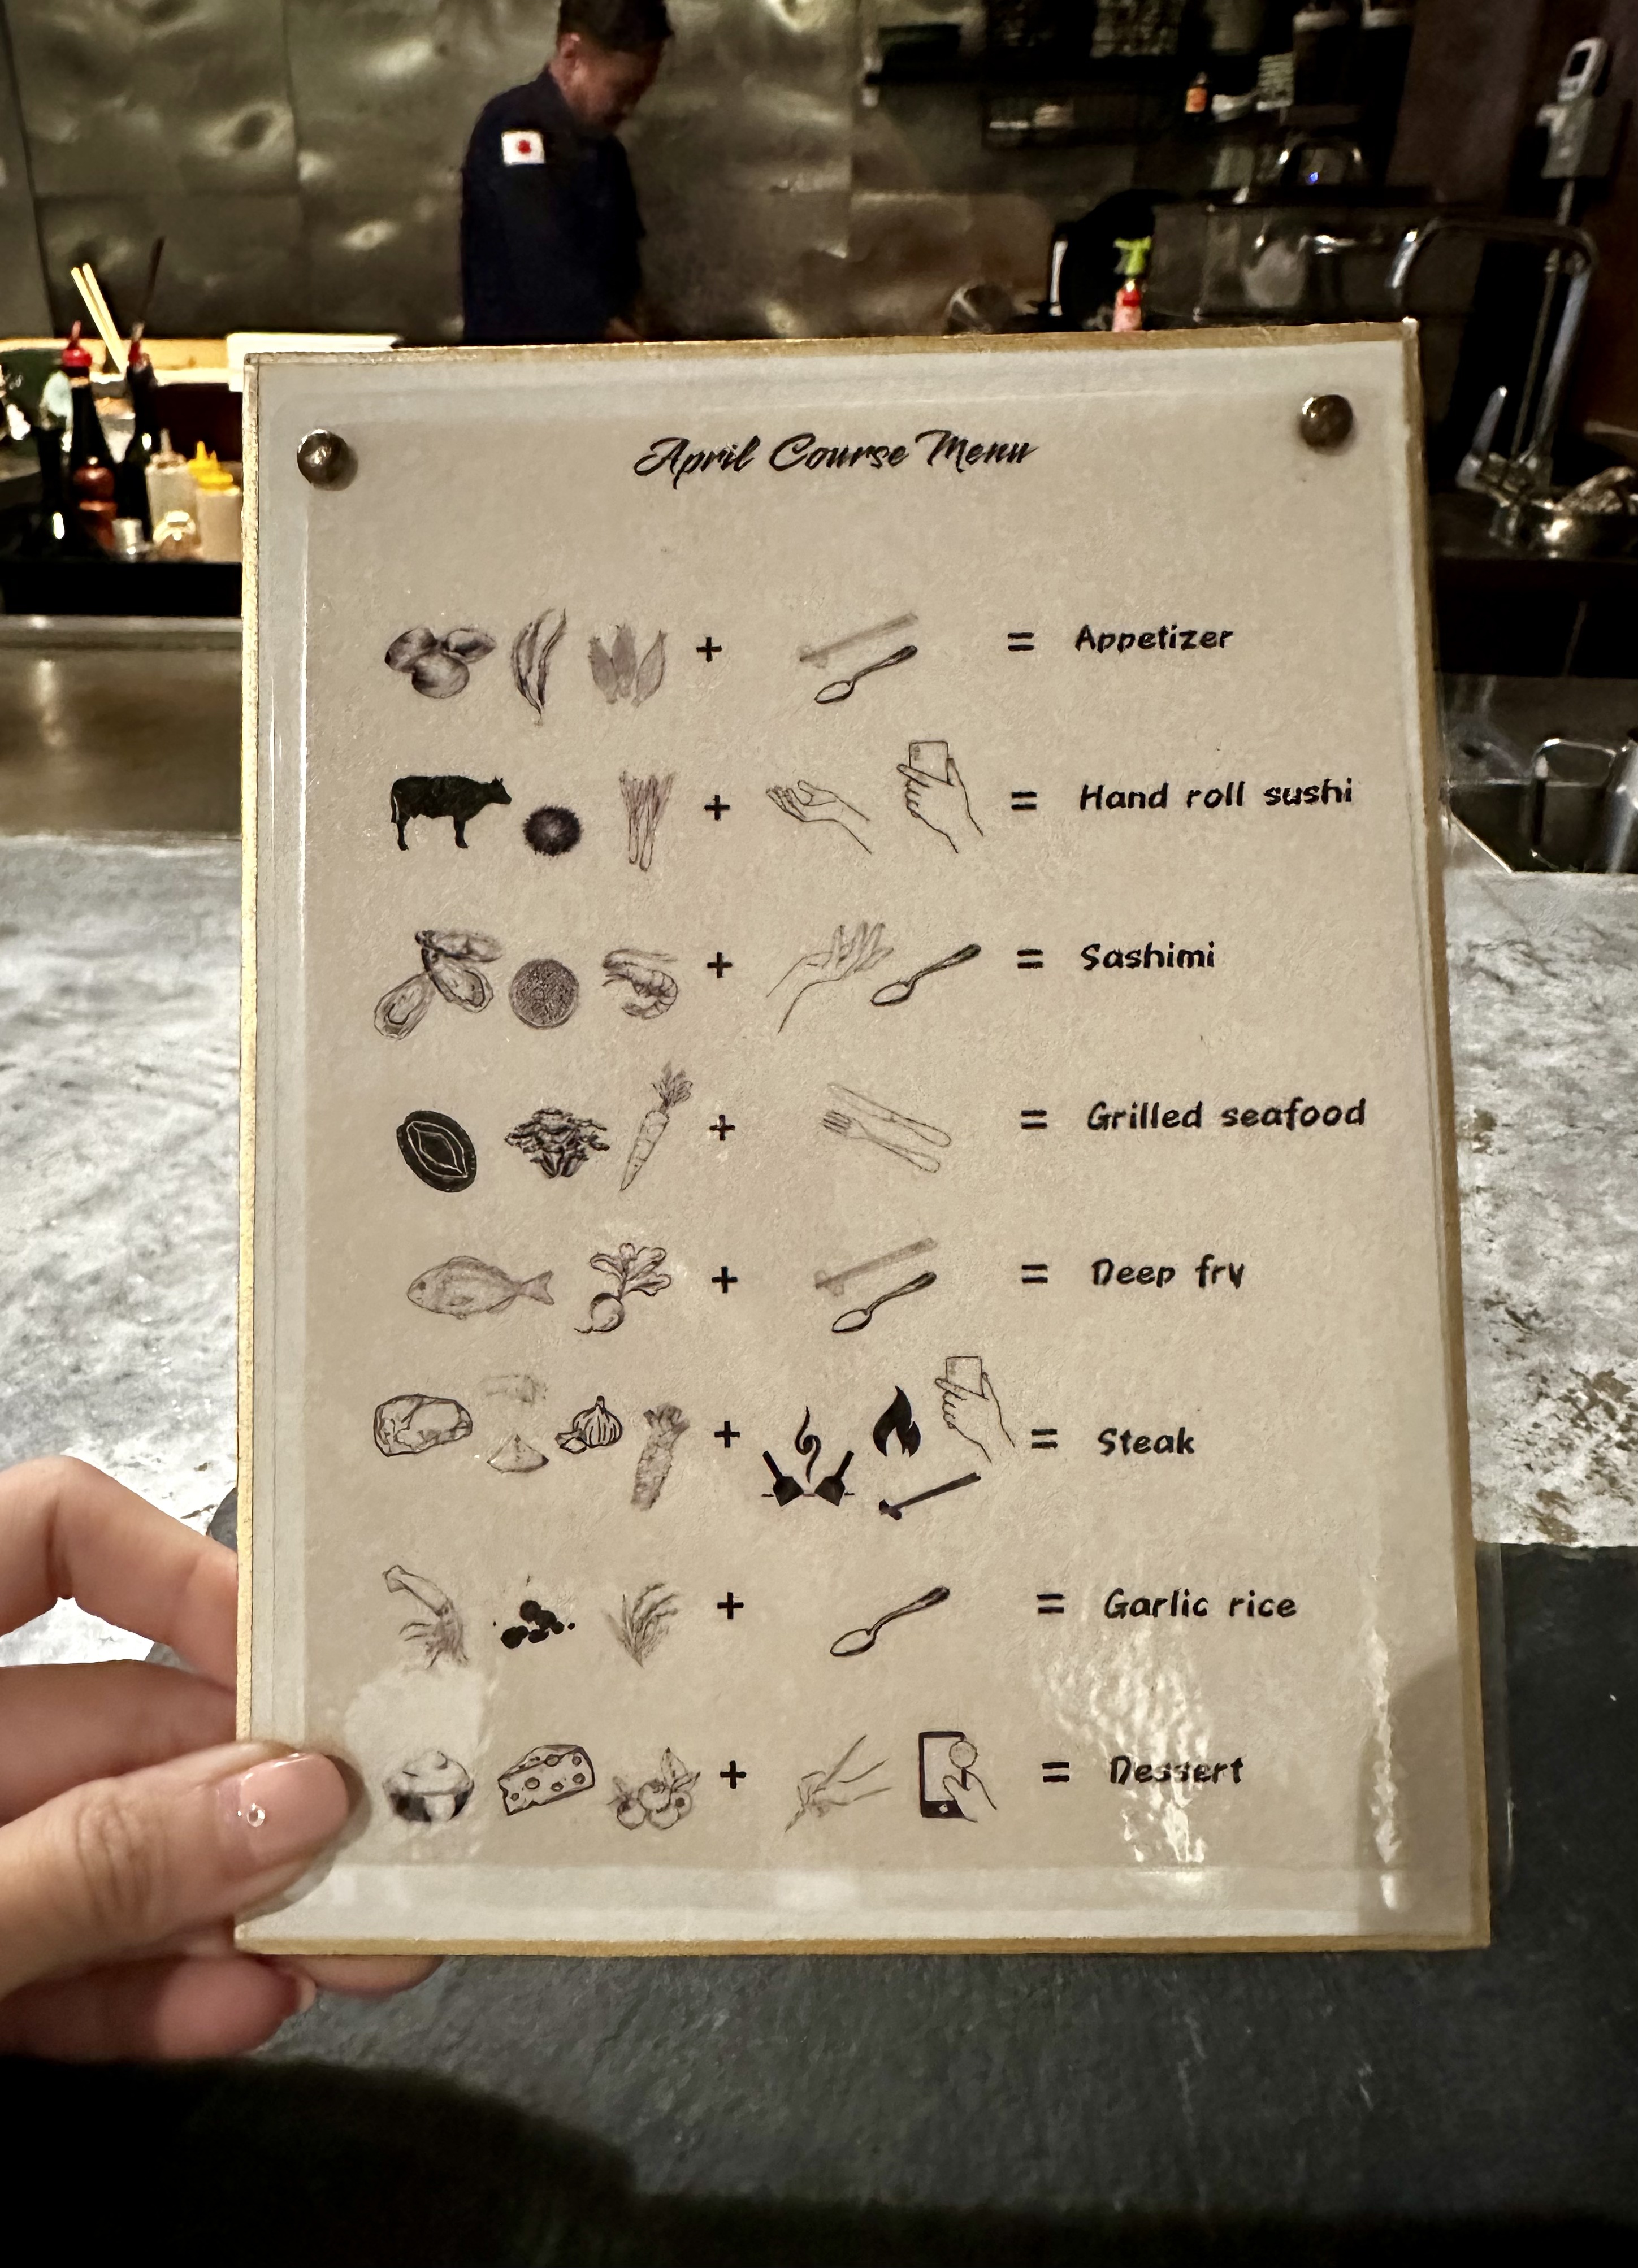 April Course Menu
+ = Appetizer
+ = Hand roll sushi
+ = Sashimi
+ = Grilled seafood
+ = Deep fry
+ = Steak
+ = Garlic rice
+ = Dessert